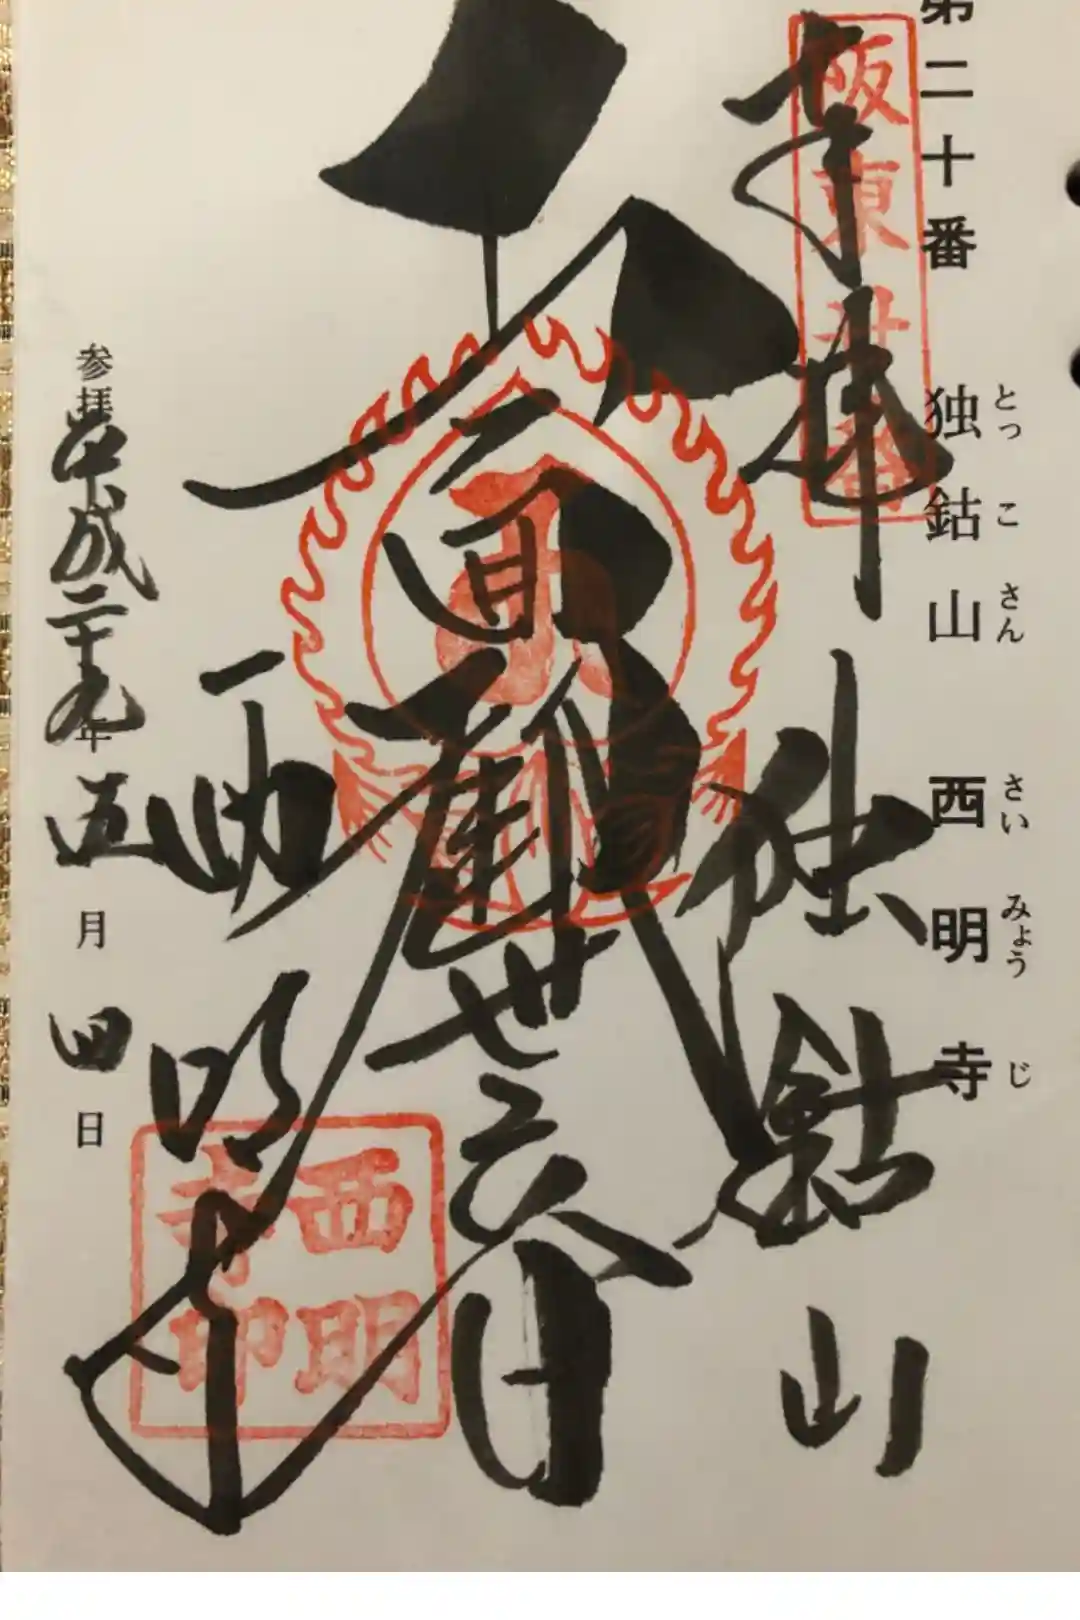 第二十番
独鈷山
とっこさん
西明寺
さいみょうじ
奉拝
坂東廿番
独鈷山
十一面観世音
西明寺
西明寺印
参拝
平成二十九年五月四日